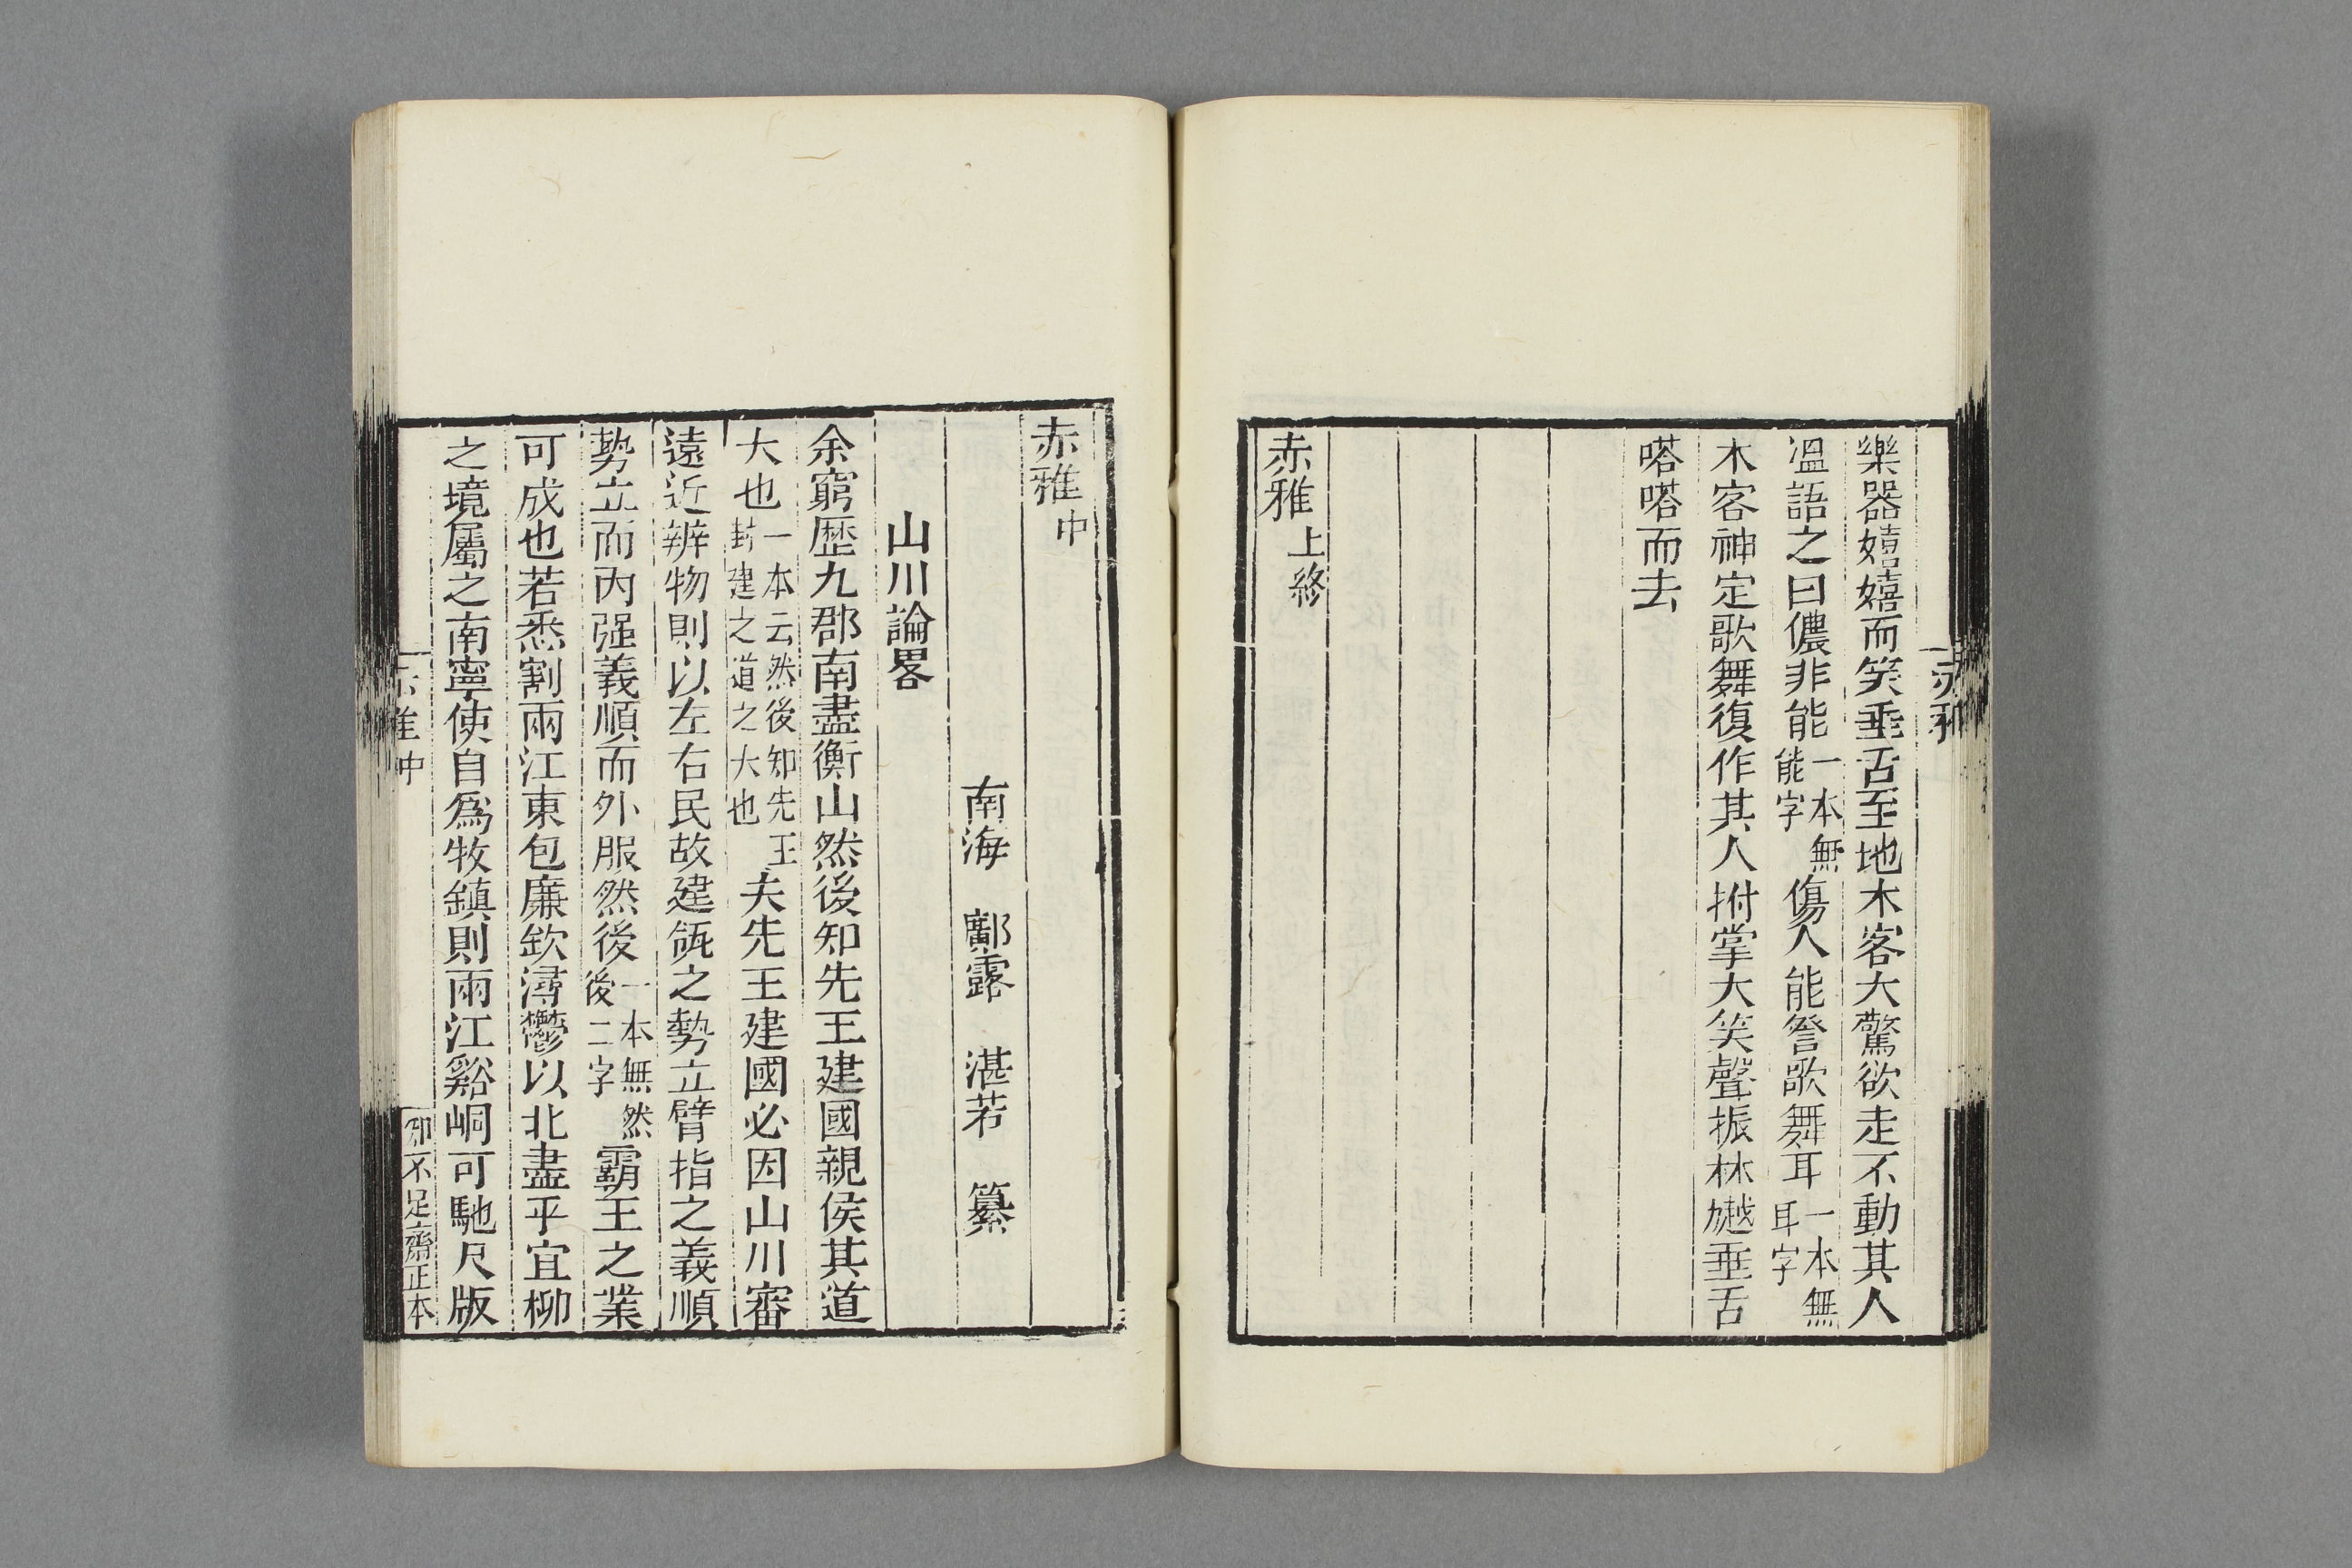 樂器嬉嬉而笑垂舌至地木客大驚欲走不動其人
溫語之曰儂非能一本無能字傷人能詧歌舞耳一本無耳字
木客神定歌舞復作其人拊掌大笑聲振林樾垂舌
嗒嗒而去
赤雅上終
赤雅中
南海 鄺露 湛若 纂
山川論畧
余窮歷九郡南盡衡山然後知先王建國親侯其道
大也一本云然後知先王封建之道之大也夫先王建國必因山川審
遠近辨物則以左右民故建瓴之勢立臂指之義順
勢立而內强義順而外服然後一本無然後二字霸王之業
可成也若悉割兩江東包廉欽潯鬱以北盡乎宜柳
之境屬之南寧使自爲牧鎮則兩江谿峒可馳尺版
知不足齋正本